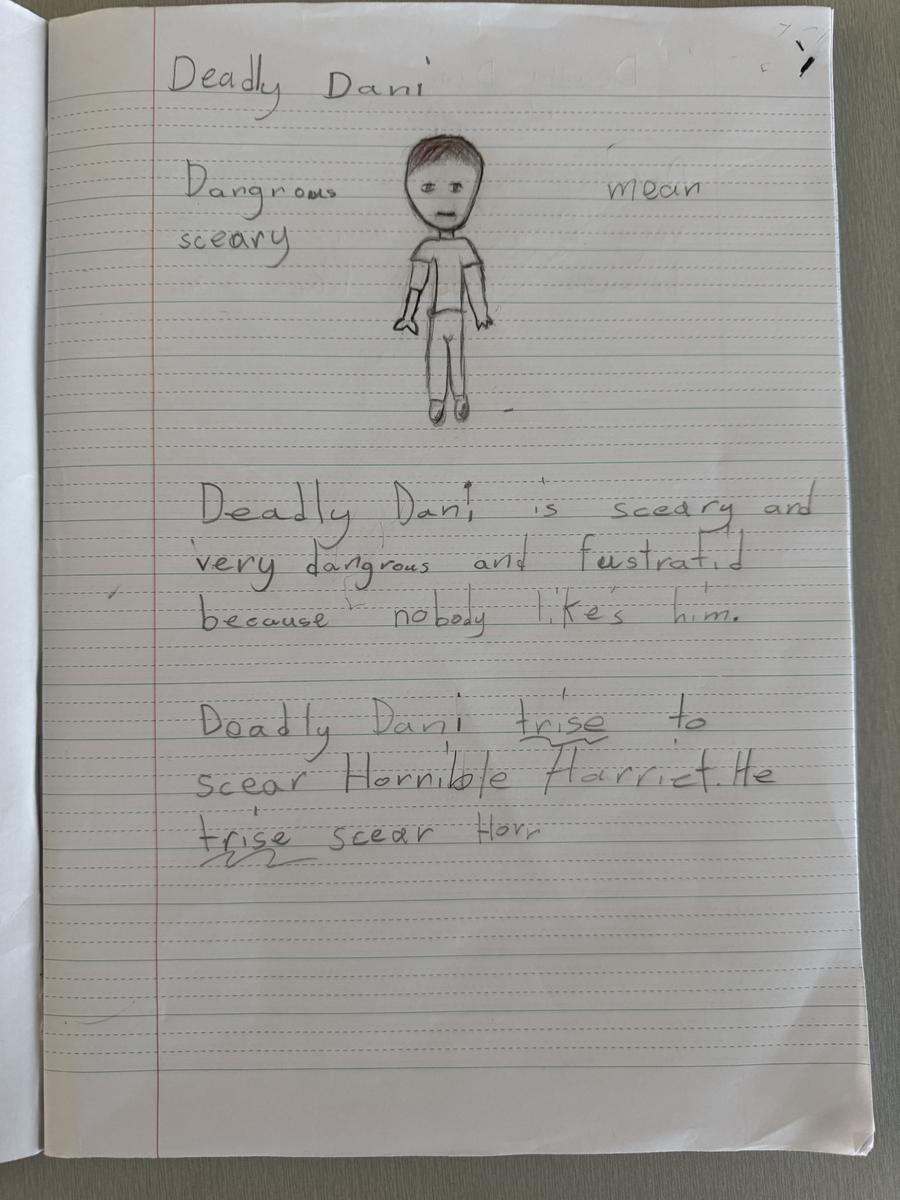 Deadly Dani
Dangrous
mean
sceary
Deadly Dani is sceary and
very dangrous and fustratid
because nobody likes him.
Deadly Dani trise to
scear Hornible Harriet. He
trise scear Horr